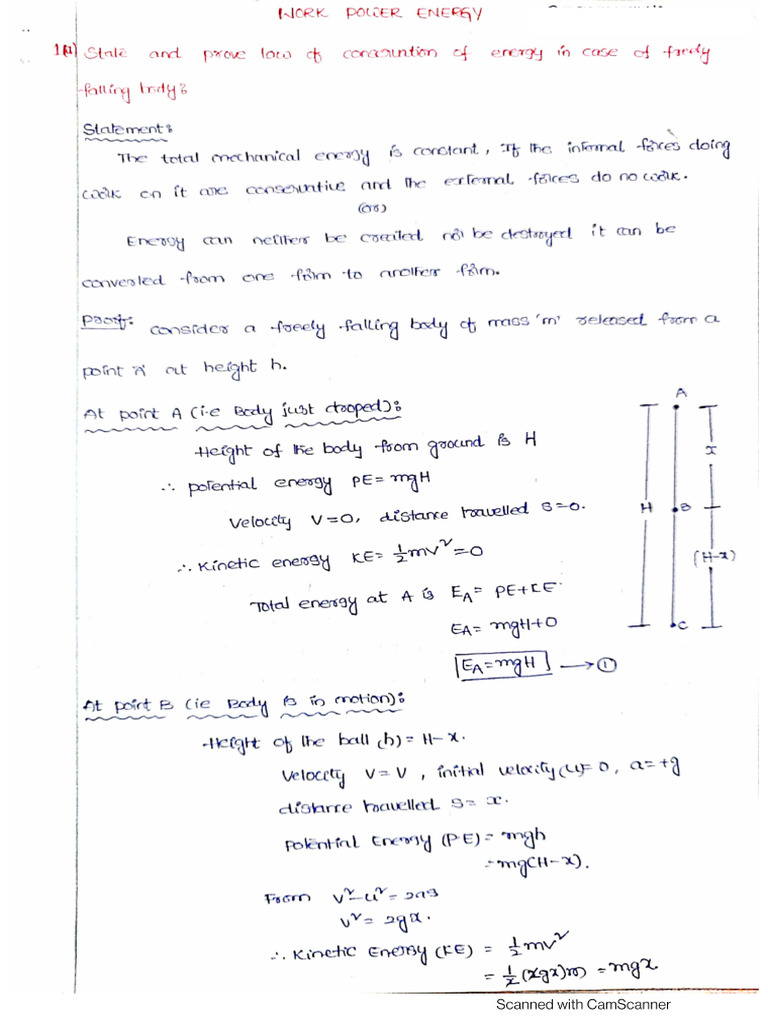 WORK POWER ENERGY
1(a) State and prove law of conservation of energy in case of freely
falling body:
Statement:
The total mechanical energy is constant, If the internal forces doing
work on it are conservative and the external forces do no work.
(or)
Energy can neither be created nor be destroyed it can be
converted from one form to another form.
Proof: Consider a freely falling body of mass 'm' released from a
point 'A' at height h.
At point A (i.e Body just dropped):
Height of the body from ground is H
∴ potential energy PE = mgH
Velocity V=0, distance travelled S=0.
∴ Kinetic energy KE = ½mv² = 0
Total energy at A is E_A = PE+KE
E_A = mgH+0
E_A = mgH → ①
A
x
H
B
(H-x)
C
At point B (ie Body is in motion):
Height of the ball (h) = H-x.
Velocity V=V, initial velocity (u)=0, a=+g
distance travelled S=x.
Potential Energy (PE) = mgh
= mg(H-x).
From v²-u² = 2as
v² = 2gx.
∴ Kinetic Energy (KE) = ½mv²
= ½(2gx)m = mgx
Scanned with CamScanner